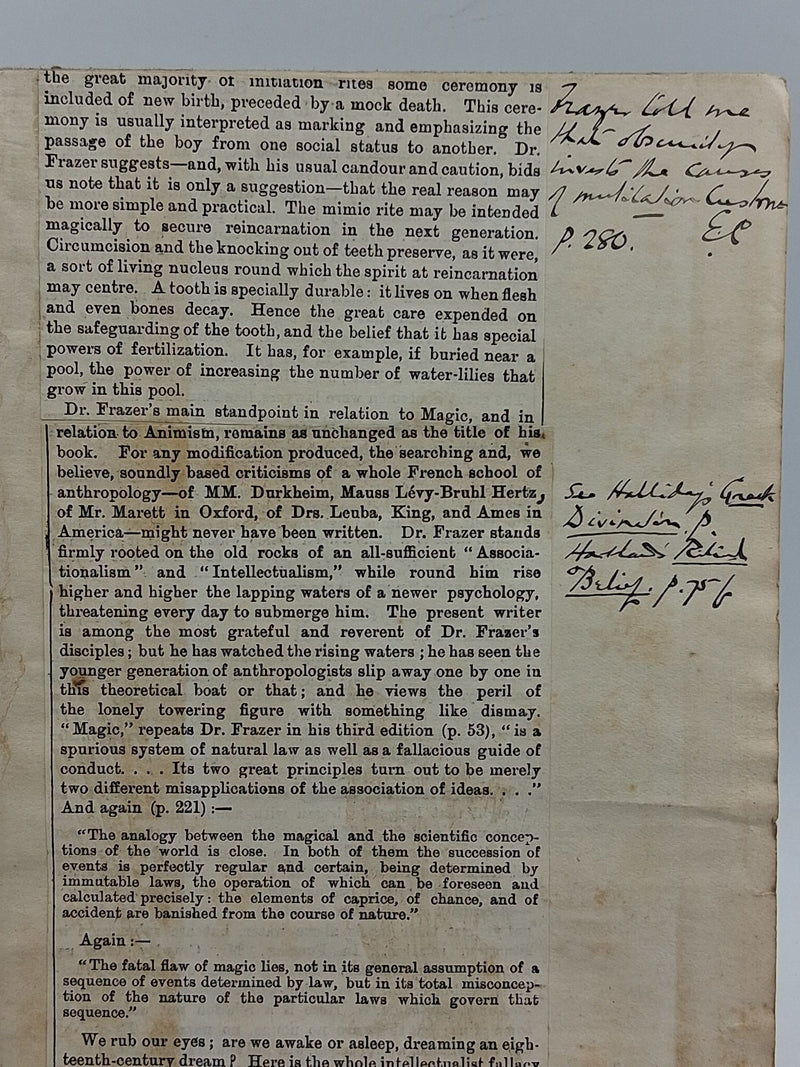 the great majority of initiation rites some ceremony is
included of new birth, preceded by a mock death. This cere-
mony is usually interpreted as marking and emphasizing the
passage of the boy from one social status to another. Dr.
Frazer suggests—and, with his usual candour and caution, bids
us note that it is only a suggestion—that the real reason may
be more simple and practical. The mimic rite may be intended
magically to secure reincarnation in the next generation.
Circumcision and the knocking out of teeth preserve, as it were,
a sort of living nucleus round which the spirit at reincarnation
may centre. A tooth is specially durable: it lives on when flesh
and even bones decay. Hence the great care expended on
the safeguarding of the tooth, and the belief that it has special
powers of fertilization. It has, for example, if buried near a
pool, the power of increasing the number of water-lilies that
grow in this pool.
Dr. Frazer's main standpoint in relation to Magic, and in
relation to Animism, remains as unchanged as the title of his
book. For any modification produced, the searching and, we
believe, soundly based criticisms of a whole French school of
anthropology—of MM. Durkheim, Mauss Lévy-Bruhl Hertz,
of Mr. Marett in Oxford, of Drs. Leuba, King, and Ames in
America—might never have been written. Dr. Frazer stands
firmly rooted on the old rocks of an all-sufficient "Associa-
tionalism" and "Intellectualism," while round him rise
higher and higher the lapping waters of a newer psychology,
threatening every day to submerge him. The present writer
is among the most grateful and reverent of Dr. Frazer's
disciples; but he has watched the rising waters; he has seen the
younger generation of anthropologists slip away one by one in
this theoretical boat or that; and he views the peril of
the lonely towering figure with something like dismay.
"Magic," repeats Dr. Frazer in his third edition (p. 53), "is a
spurious system of natural law as well as a fallacious guide of
conduct. . . . Its two great principles turn out to be merely
two different misapplications of the association of ideas. . . ."
And again (p. 221):—
"The analogy between the magical and the scientific concep-
tions of the world is close. In both of them the succession of
events is perfectly regular and certain, being determined by
immutable laws, the operation of which can be foreseen and
calculated precisely: the elements of caprice, of chance, and of
accident are banished from the course of nature."
Again:—
"The fatal flaw of magic lies, not in its general assumption of a
sequence of events determined by law, but in its total misconcep-
tion of the nature of the particular laws which govern that
sequence."
We rub our eyes; are we awake or asleep, dreaming an eigh-
teenth-century dream? Here is the whole intellectualist fallacy
Frazer told me
that obscurity
invests the causes
of mutilation customs
P. 280. EC
See Halliday's Greek
Divination, p.
Hartland's Ritual
& Belief. p. 75 f